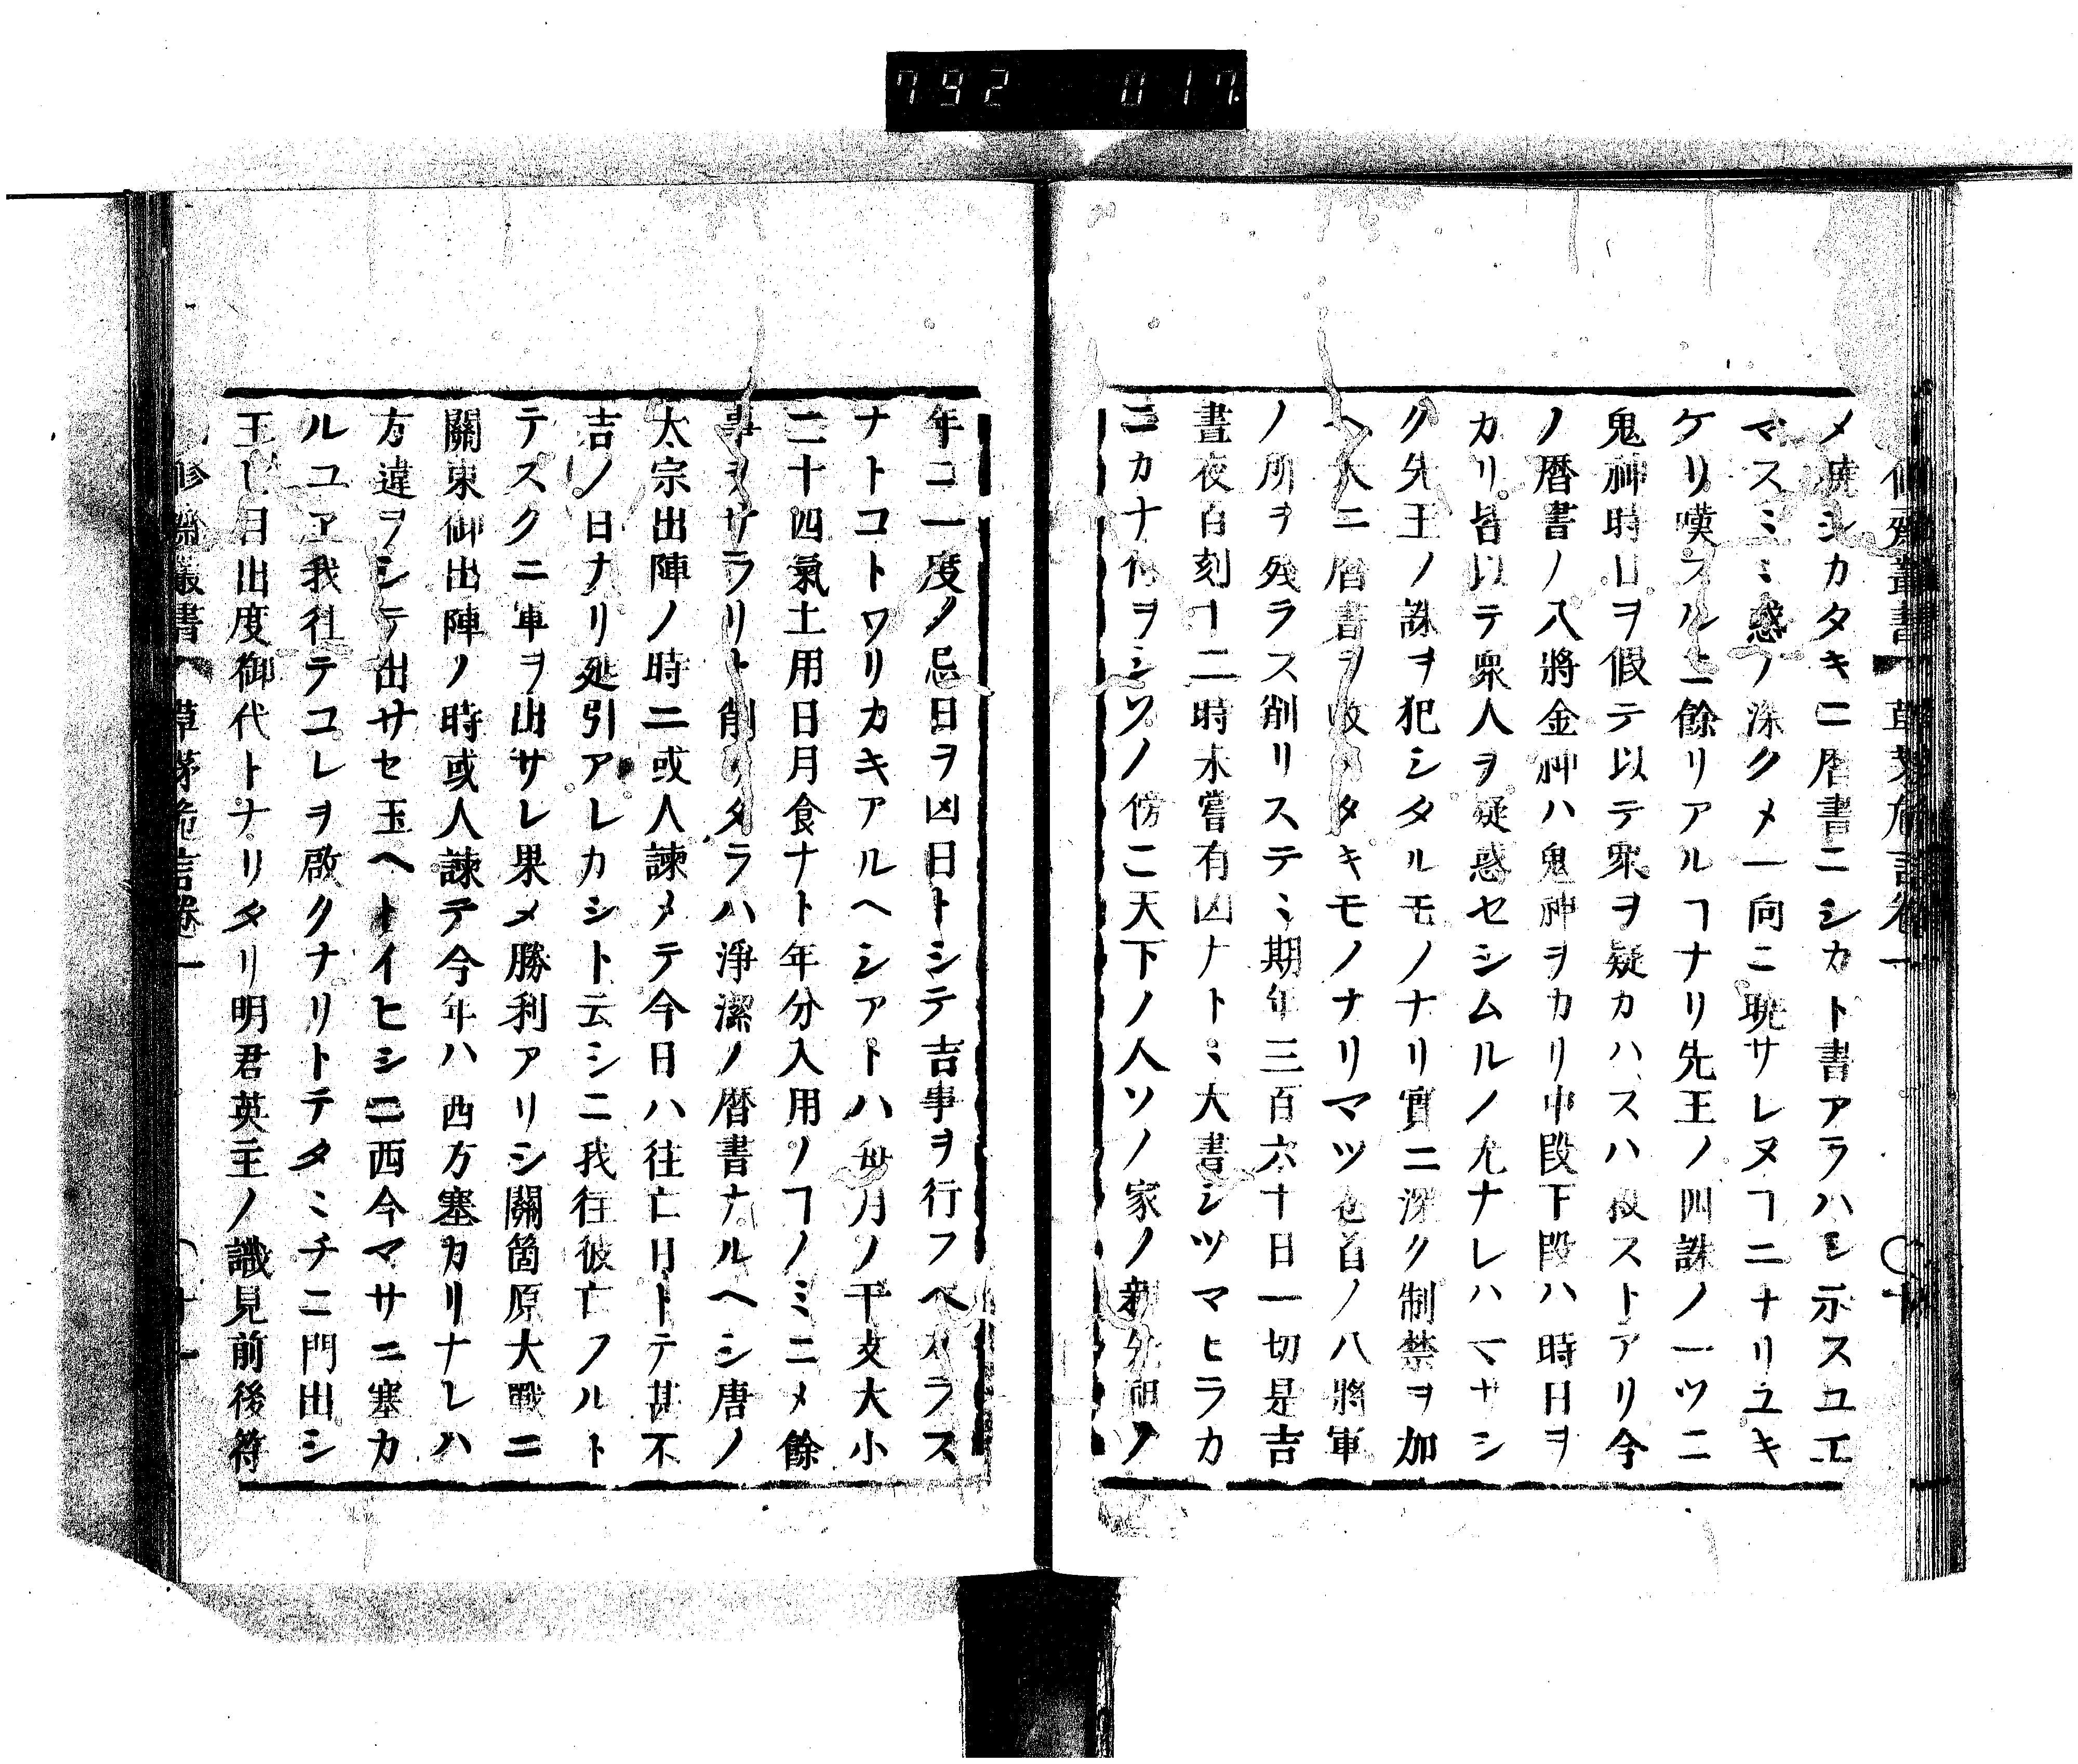 792 017
脩齋叢書 草茅危言卷一 ○十
メ曉シカタキニ暦書ニシカト書アラハシ示スユエ
マスミヽ惑ノ深クメ一向ニ耽サレヌヿニナリユキ
ケリ嘆スルニ餘リアルヿナリ先王ノ四誅ノ一ツニ
鬼神時日ヲ假テ以テ衆ヲ疑カハスハ殺ストアリ今
ノ暦書ノ八將金神ハ鬼神ヲカリ中段下段ハ時日ヲ
カリ皆以テ衆人ヲ疑惑セシムルノ尤ナレハマサシ
ク先王ノ誅ヲ犯シタルモノナリ實ニ深ク制禁ヲ加
ヘ大ニ暦書ヲ改メタキモノナリマツ巻首ノ八將軍
ノ所ヲ残ラス削リステヽ期年三百六十日一切是吉
晝夜百刻十二時未嘗有凶ナトヽ大書シツマヒラカ
ニカナ付ヲシソノ傍ニ天下ノ人ソノ家ノ親先祖ノ
年ニ一度ノ忌日ヲ凶日トシテ吉事ヲ行フベカラス
ナトコトワリカキアルヘシアトハ毎月ノ干支大小
二十四氣土用日月食ナト年分入用ノヿノミニメ餘
事ヲサラリト削リタラハ淨潔ノ暦書ナルヘシ唐ノ
太宗出陣ノ時ニ或人諫メテ今日ハ往亡日トテ甚不
吉ノ日ナリ延引アレカシト云シニ我往彼亡フルト
テスクニ軍ヲ出サレ果メ勝利アリシ關箇原大戰ニ
關東御出陣ノ時或人諫テ今年ハ西方塞カリナレハ
方違ヲシテ出サセ玉ヘトイヒシニ西今マサニ塞カ
ルユヱ我往テコレヲ啟クナリトテタミチニ門出シ
玉ヒ目出度御代トナリタリ明君英主ノ識見前後符
修齋叢書 草茅危言卷一 ○十一